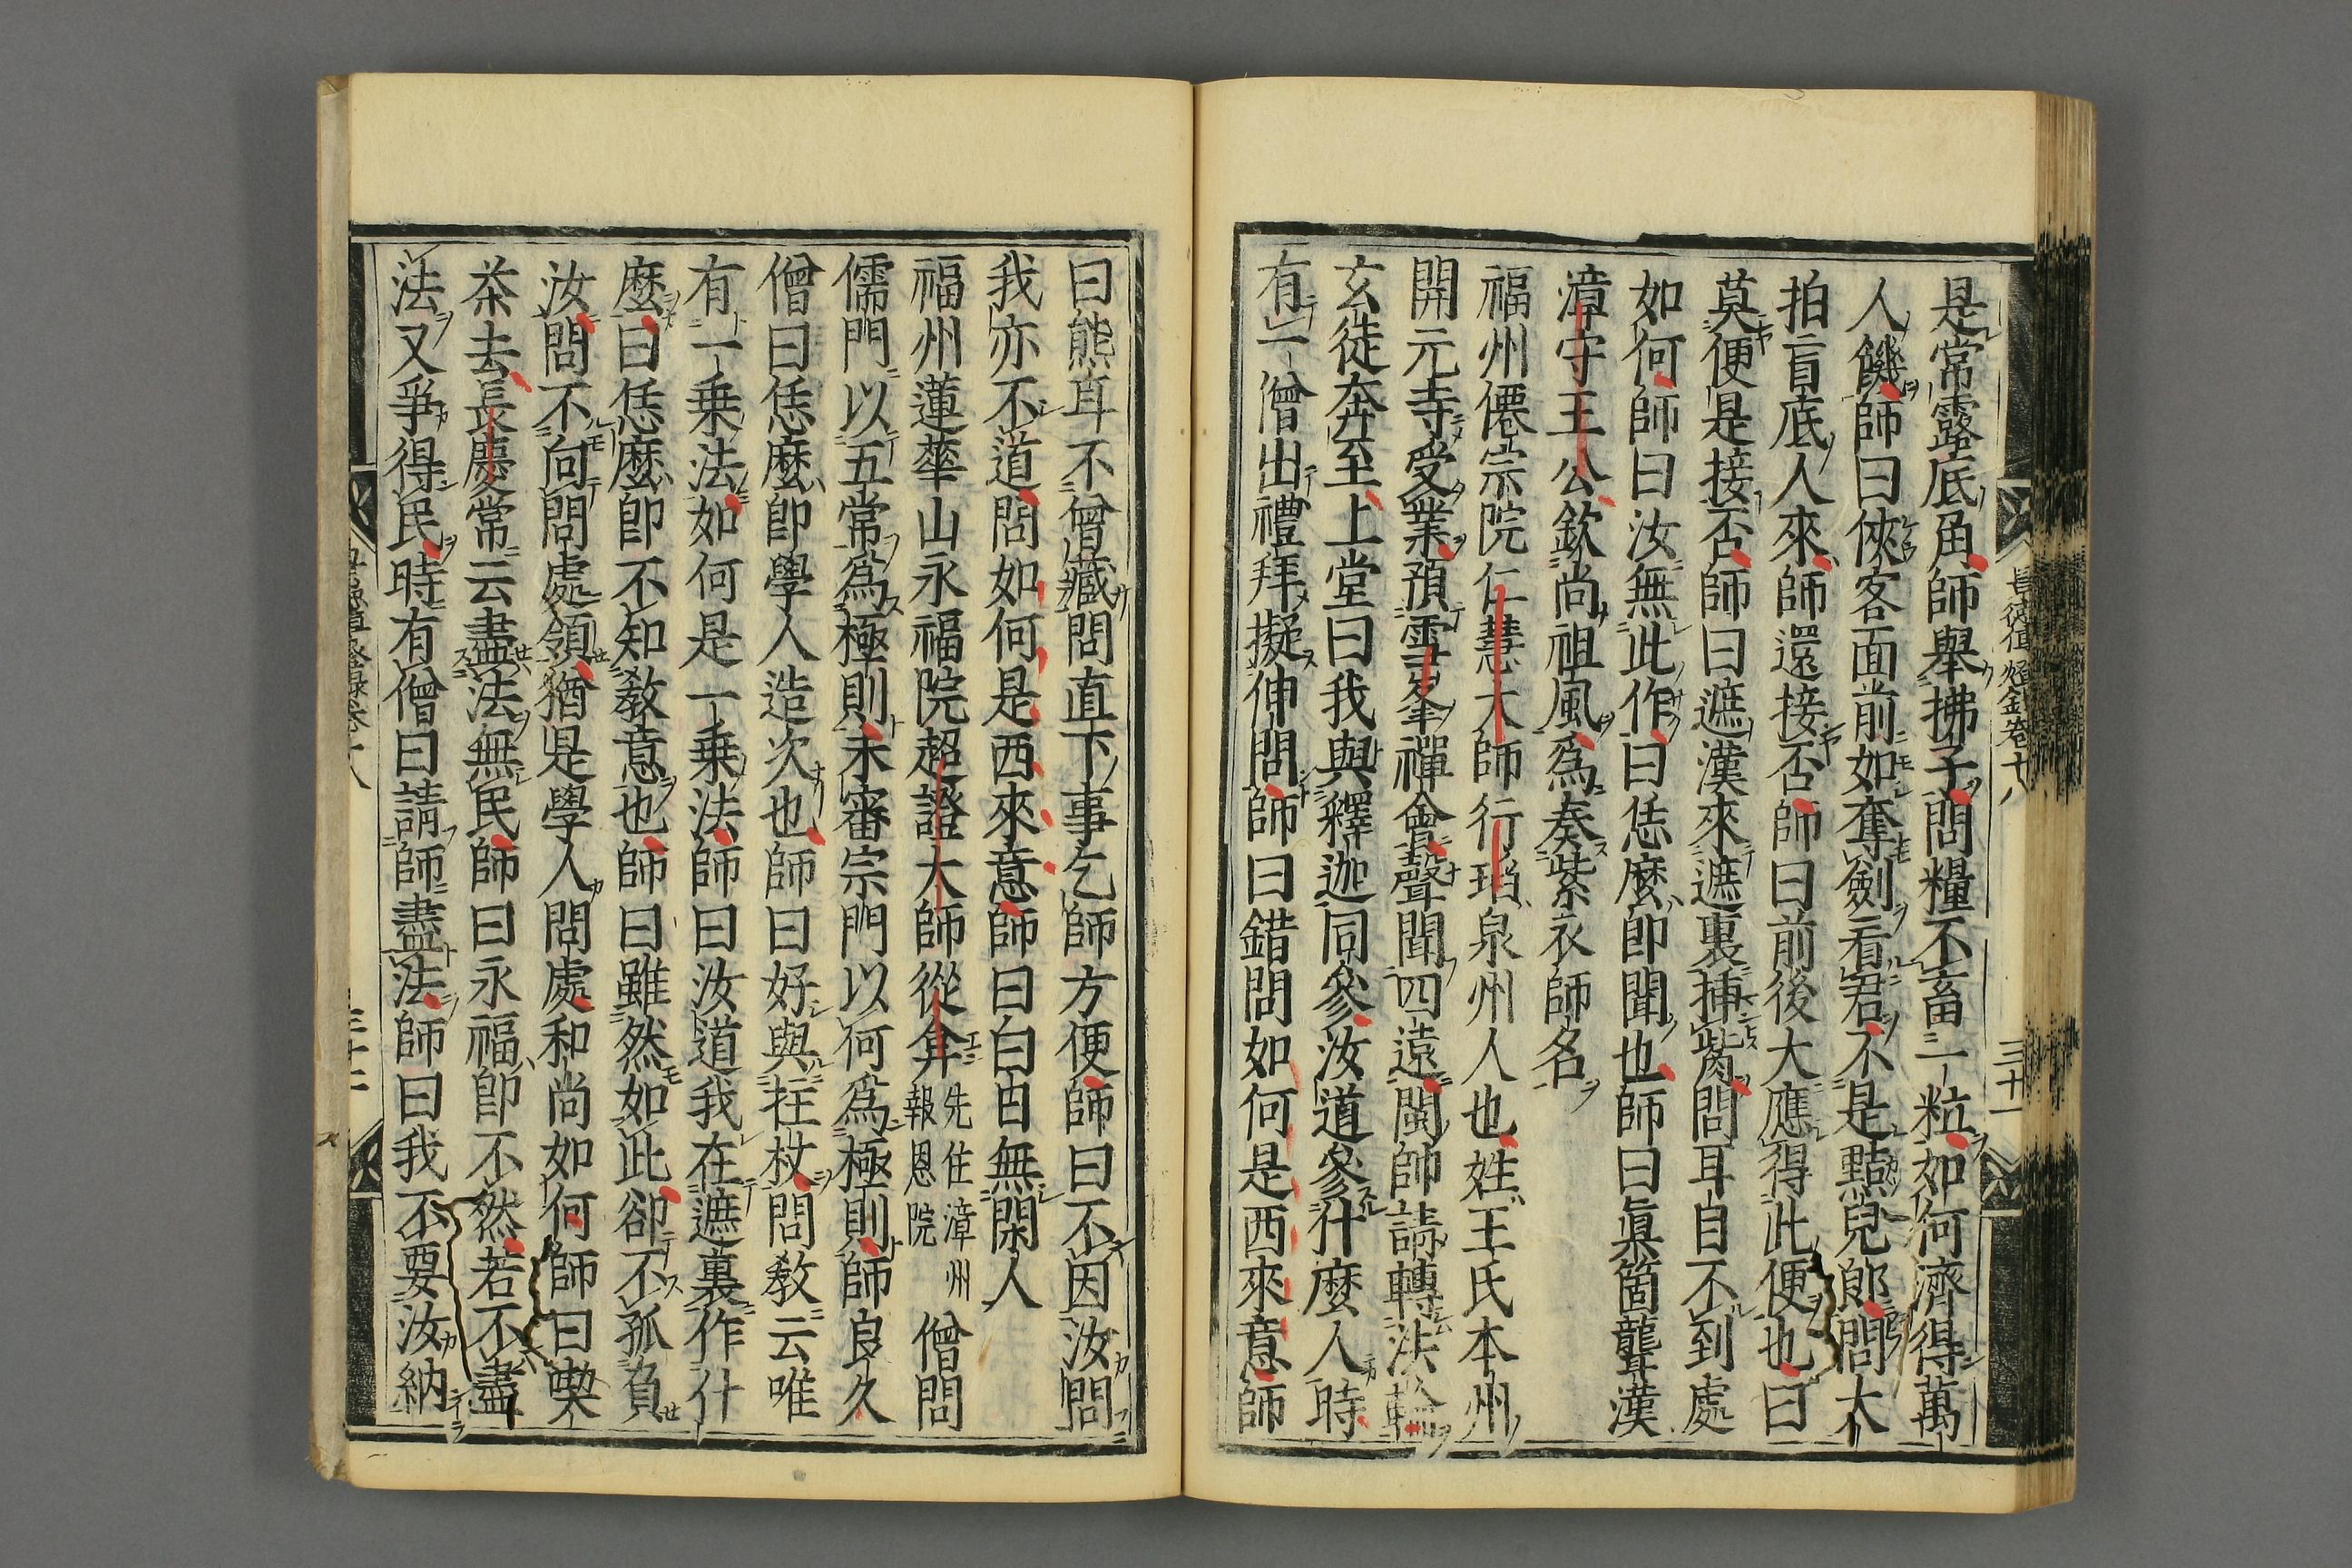 是常露底角師舉拂子問糧不畜一粒如何濟得萬
人饑師曰俠客面前如奪劍看君不是黠兒郎問大
拍盲底人來師還接否師曰前後大應得此便也曰
莫便是接否師曰遮漢來遮裏插觜問耳自不到處
如何師曰汝無此作曰恁麼即聞也師曰眞箇聾漢
漳守王公欽尚祖風爲奏紫衣師名
福州僊宗院仁慧大師行瑫泉州人也姓王氏本州
開元寺受業預雪峯禪會聲聞四遠閩帥請轉法輪
玄徒奔至上堂曰我與釋迦同參汝道參什麼人時
有一僧出禮拜擬伸問師曰錯問如何是西來意師
曰熊耳不曾藏問直下事乞師方便師曰不因汝問
我亦不道問如何是西來意師曰白日無閑人
福州蓮華山永福院超證大師從弇先住漳州報恩院僧問
儒門以五常爲極則未審宗門以何爲極則師良久
僧曰恁麼即學人造次也師曰好與拄杖問教云唯
有一乘法如何是一乘法師曰汝道我在遮裏作什
麼曰恁麼即不知教意也師曰雖然如此卻不孤負
汝問不向問處領猶是學人問處和尚如何師曰喫
茶去長慶常云盡法無民師曰永福即不然若不盡
法又爭得民時有僧曰請師盡法師曰我不要汝納